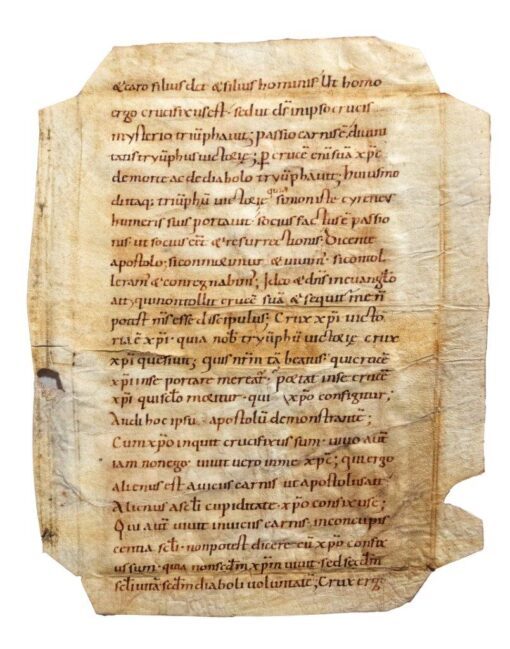 & caro filius dei & filius hominis. Ut homo
ergo crucifixus est. sed ut ds̄ in ipso crucis
mysterio triūphauit; passio carnis ē, diuini
tatis tryūphus uictorię; p crucē eni suā xp̄c
de morte ac de diabolo tryūphauit; huius mo
di itaq; triūphū uictorię quia simon iste cyreneus
humeris suis portauit. socius factus ē passio
nis. ut socius eēt & resurrectionis. Dicente
apostolo; si conmorimur & uiuim; si contol
leram; & conregnabim; Ideo & dn̄s in euanglo
ait; qui non tollit crucē suā & sequit me n̄
potest m̄s esse discipulus; Crux xp̄i uicto
ria ē xp̄i. quia nob tryūphū uictorię crux
xp̄i quesiuit; quis nr̄m tā beatus. qui crucē
xp̄i in se portare mereat; portat in se crucē
xp̄i qui sclo moritur. qui xp̄o configitur;
Audi hoc ipsū apostolū demonstrantē;
Cum xp̄o inquit crucifixus sum. uiuo autē
iam non ego. uiuit uero in me xp̄c; qui ergo
alienus est a uiciis carnis ut apostolus ait
Alienus a scli cupiditate. xp̄o confixus ē;
Qui autē uiuit in uiciis carnis. in concupis
centia scli. non potest dicere cū xp̄o confix
us sum. quia non sedm̄ xp̄m uiuit. sed sedm̄
scli uitā sedm̄ diaboli voluntatē; Crux ergo